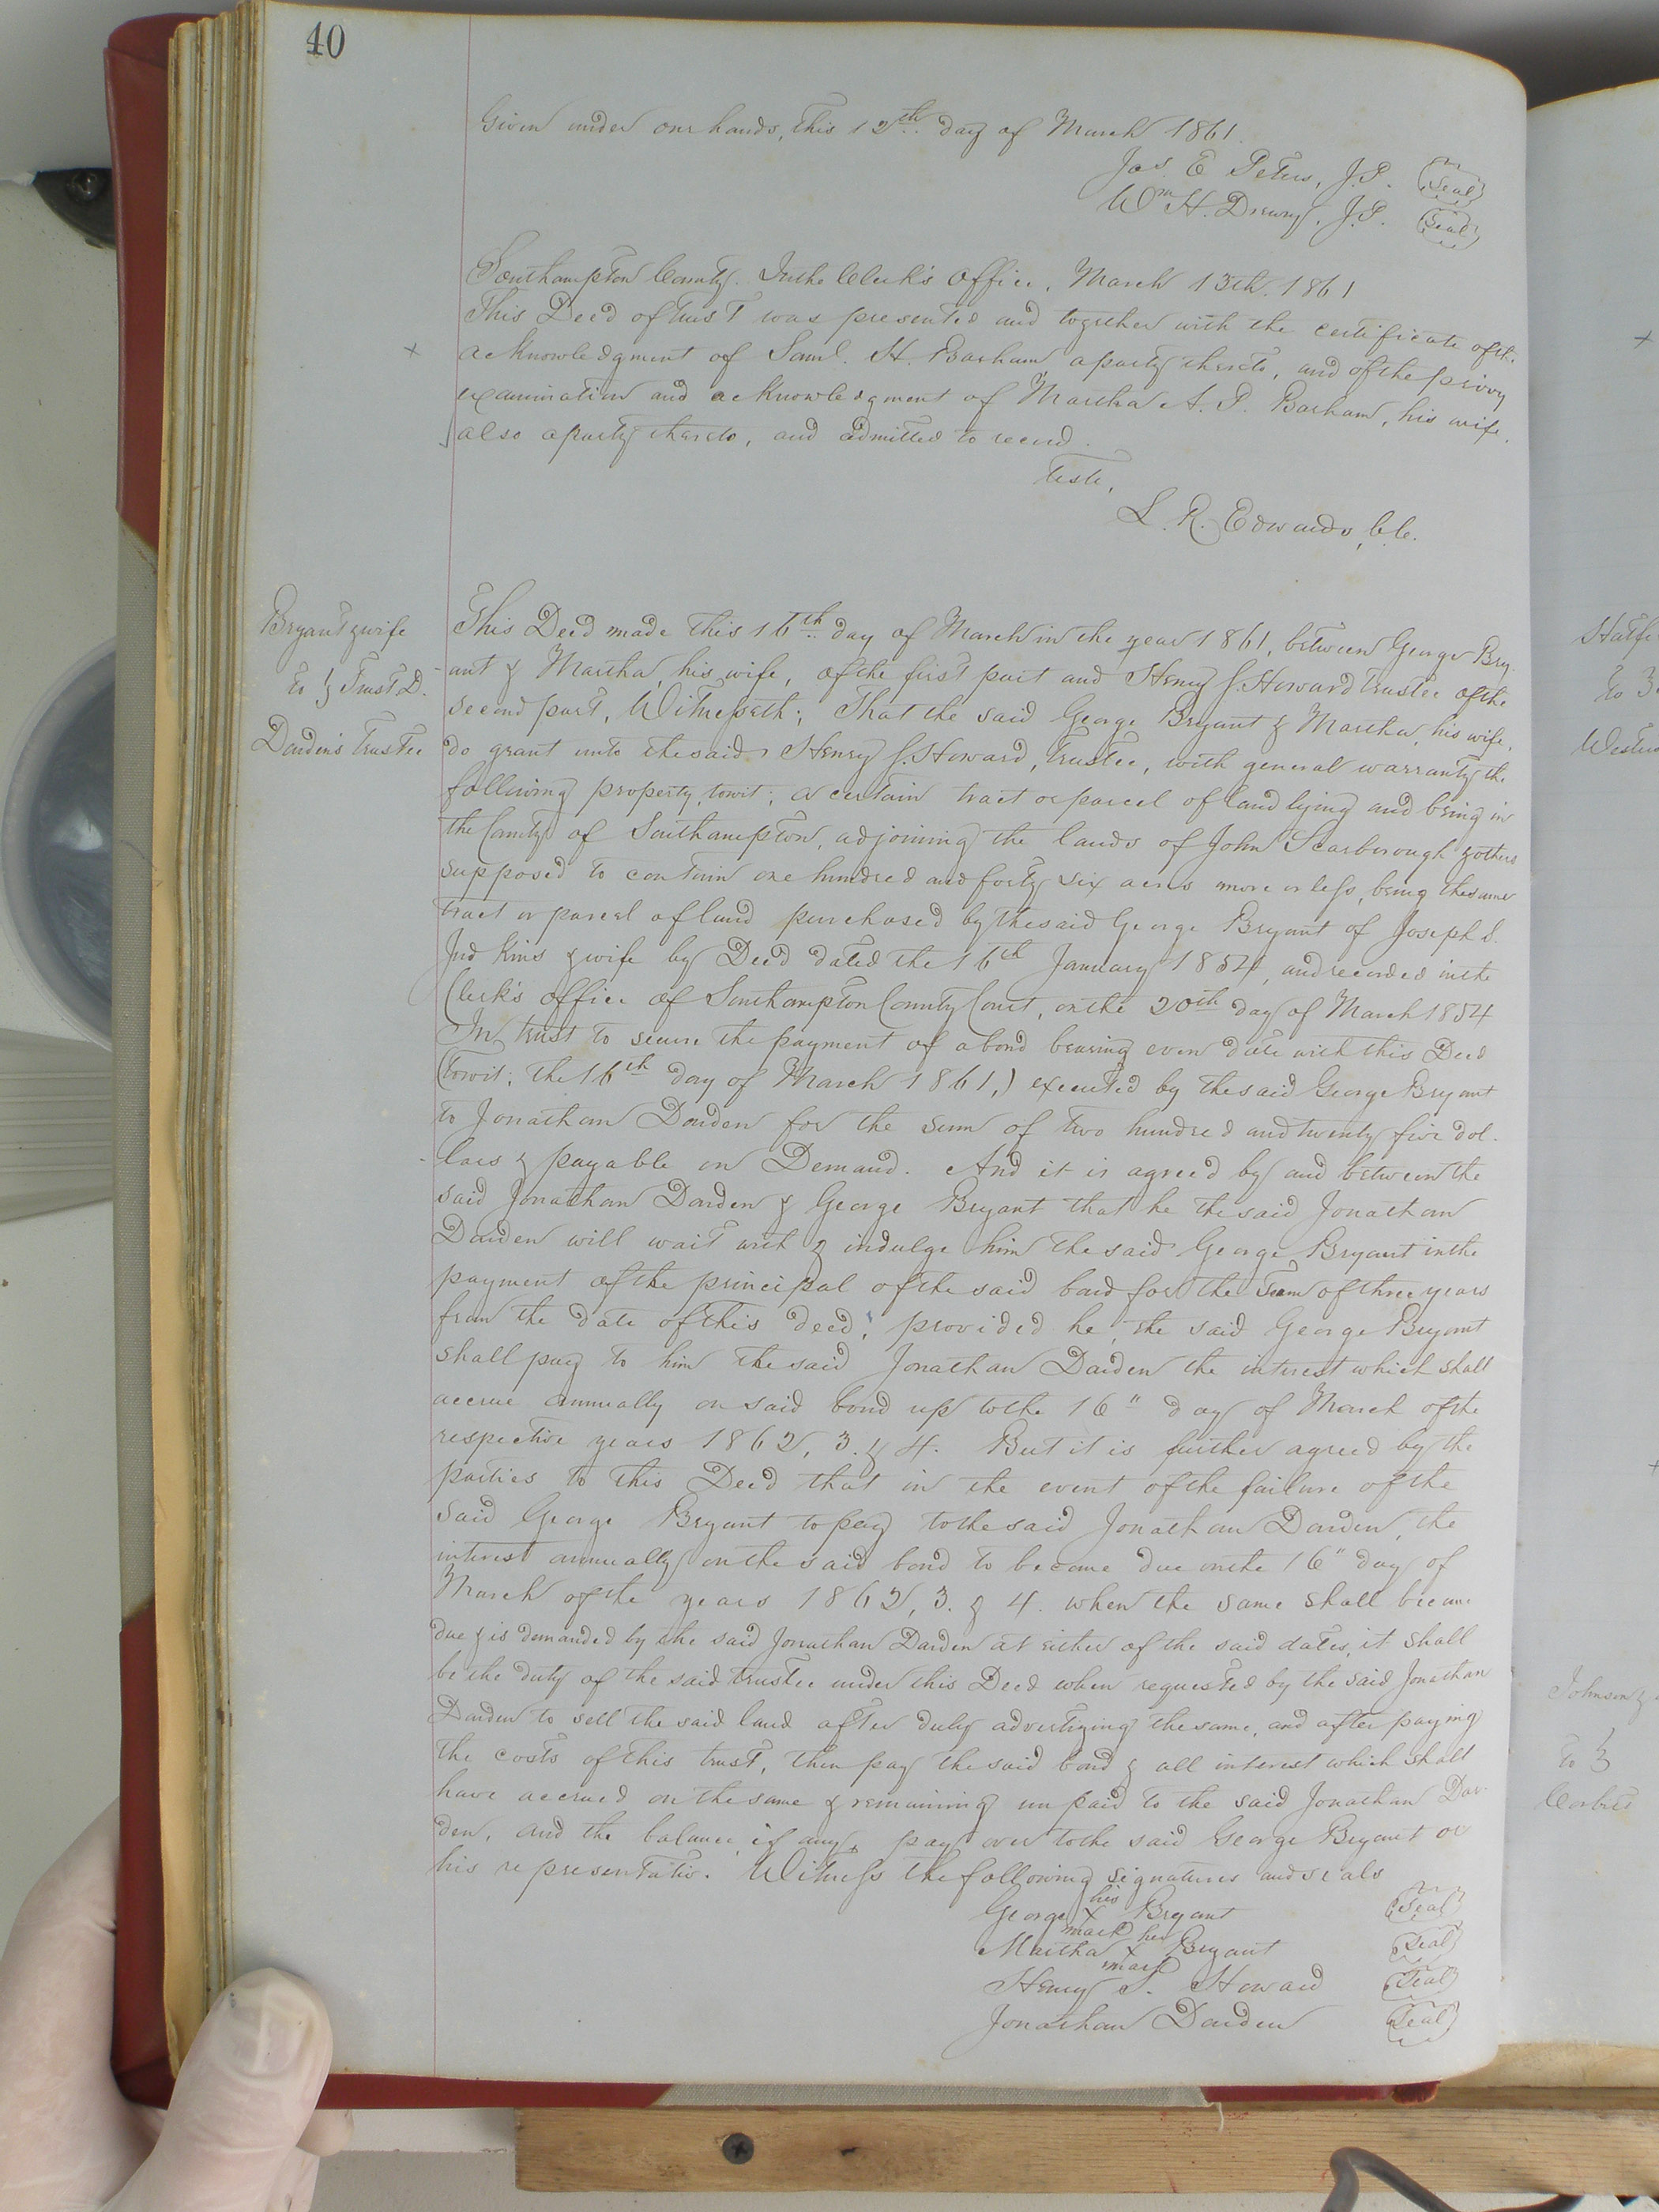 40
Given under our hands, this 12th day of March 1861.
Jas. E Peters, J.P. (Seal)
Wm H. Drewry, J.P. (Seal)
Southampton County. In the Clerk's Office, March 13th. 1861
This Deed of trust was presented and together with the certificate of the
acknowledgment of Saml. H. Barham a party thereto, and of the privy
examination and acknowledgment of Martha A. P. Barham, his wife,
also a party thereto, and admitted to record.
Teste,
L. R. Edwards, C.C.
Bryant & wife
to } Trust D.
Darden's Trustee
This Deed made this 16th day of March in the year 1861, between George Bry-
ant & Martha, his wife, of the first part and Henry J. Howard Trustee of the
second part, Witnesseth; That the said George Bryant & Martha, his wife,
do grant unto the said Henry J. Howard, Trustee, with general warranty the
following property, towit; a certain tract or parcel of land lying and being in
the County of Southampton, adjoining the lands of John Scarborough & others
supposed to contain one hundred and forty six acres more or less, being the same
tract or parcel of land purchased by the said George Bryant of Joseph S.
Judkins & wife by Deed dated the 16th January 1854, and recorded in the
Clerk's office of Southampton County Court, on the 20th day of March 1854
In trust to secure the payment of a bond bearing even date with this Deed
(Towit; the 16th day of March 1861,) executed by the said George Bryant
to Jonathan Darden for the sum of two hundred and twenty five dol-
lars & payable on Demand. And it is agreed by and between the
said Jonathan Darden & George Bryant that he the said Jonathan
Darden will wait with & indulge him the said George Bryant in the
payment of the principal of the said bond for the term of three years
from the date of this deed; provided he, the said George Bryant
shall pay to him the said Jonathan Darden the interest which shall
accrue annually on said bond up to the 16" day of March of the
respective years 1862, 3. & 4. But it is further agreed by the
parties to this Deed that in the event of the failure of the
said George Bryant to pay to the said Jonathan Darden, the
interest annually on the said bond to become due on the 16" day of
March of the years 1862, 3. & 4. when the same shall become
due & is demanded by the said Jonathan Darden at either of the said dates, it shall
be the duty of the said trustee under this Deed when requested by the said Jonathan
Darden to sell the said land after duly advertizing the same, and after paying
the costs of this trust, then pay the said bond & all interest which shall
have accrued on the same & remaining unpaid to the said Jonathan Dar-
den, and the balance, if any, pay over to the said George Bryant or
his representativ. Witness the following signatures and seals
his
George X Bryant (Seal)
mark her
Martha X Bryant (Seal)
mark
Henry J. Howard (Seal)
Jonathan Darden (Seal)
to 3
Johnson &
to 3